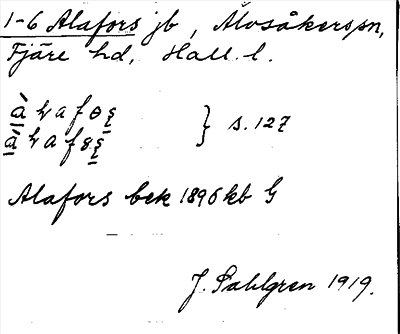 1-6 Alafors jb, Älvsåkers sn,
Fjäre hd, Hall. l.
} s. 127
Alafors bek 1896 kb G
J. Sahlgren 1919.